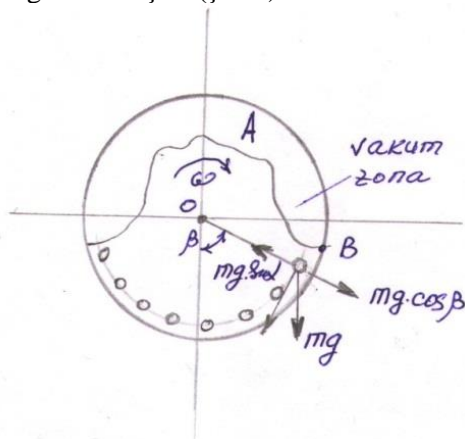 A
vakum
zona
ω
O
B
β
mg·sinα
mg·cosβ
mg